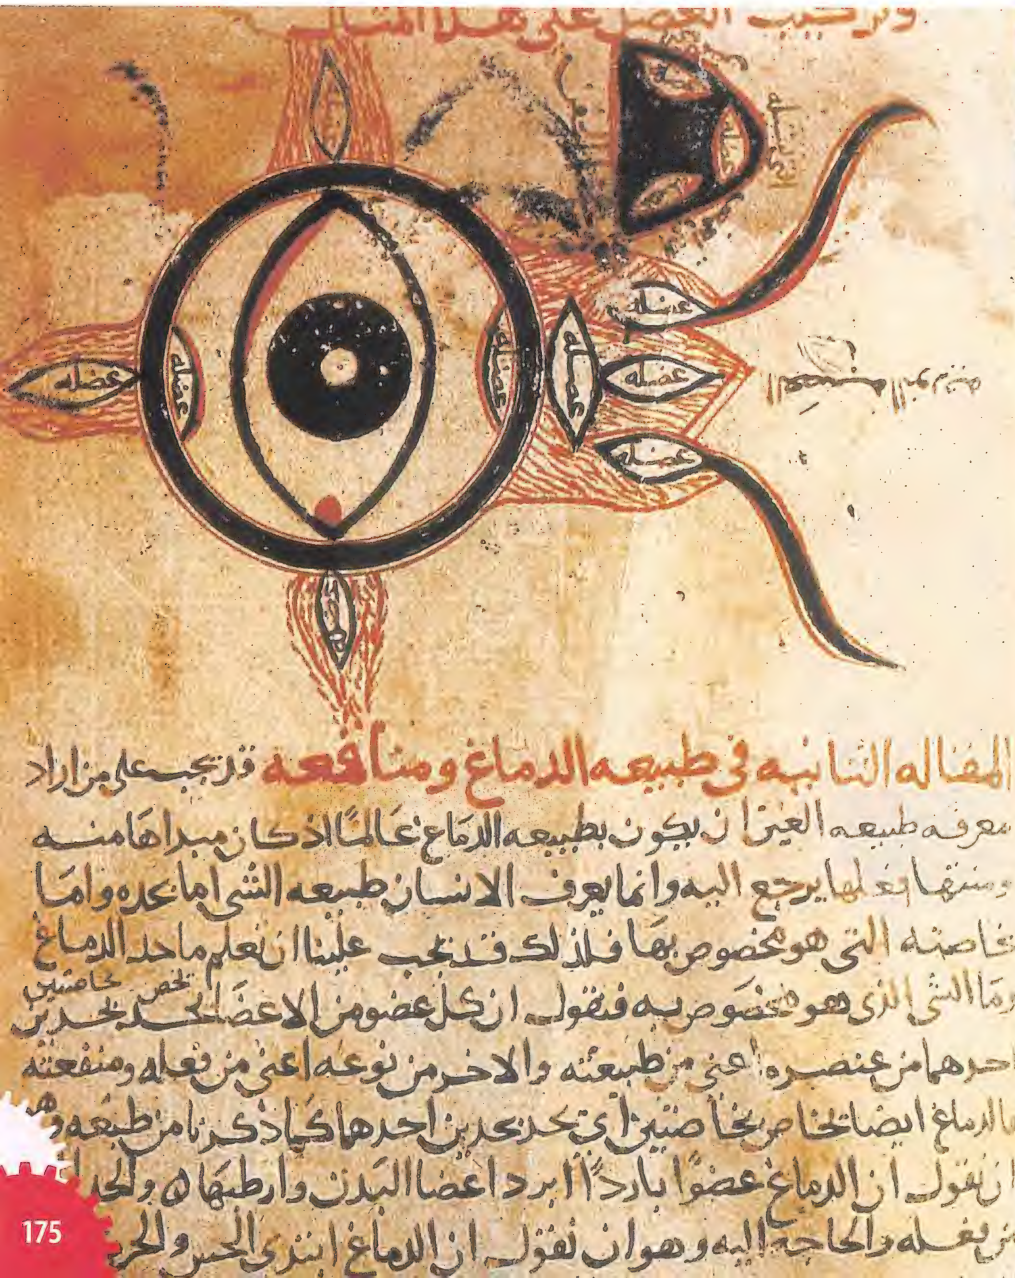 وتركيب العضل على هذا المثال
عضله
عضله
عضله
عضله
عضله
عضله
عضله
عضله
عضله
المقاله الثانيه فى طبيعه الدماغ ومنافعه قد يجب على من اراد
معرفه طبيعه العين ان يكون بطبيعه الدماغ عالمًا اذ كان مبداها منه
ومنتها فعلها يرجع اليه وانما يعرف الانسان طبيعه الشى اما بحده واما
بخاصته التى هو مخصوص بها فلذلك قد يجب علينا ان نعلم ما حد الدماغ
وما الشى الذى هو مخصوص به فنقول ان كل عضو من الاعضا يحد بحدين
يخص بخاصتين
احدهما من عنصره اعنى من طبيعته والاخر من نوعه اعنى من فعله ومنفعته
فالدماغ ايضا بخاصتين اى يحد بحدين احدهما كما ذكرنا من طبعه وهو
ان نقول ان الدماغ عضوًا باردًا ابرد اعضا البدن وارطبها
من فعله والحاجه اليه وهو ان نقول ان الدماغ ابتدى الحس
175